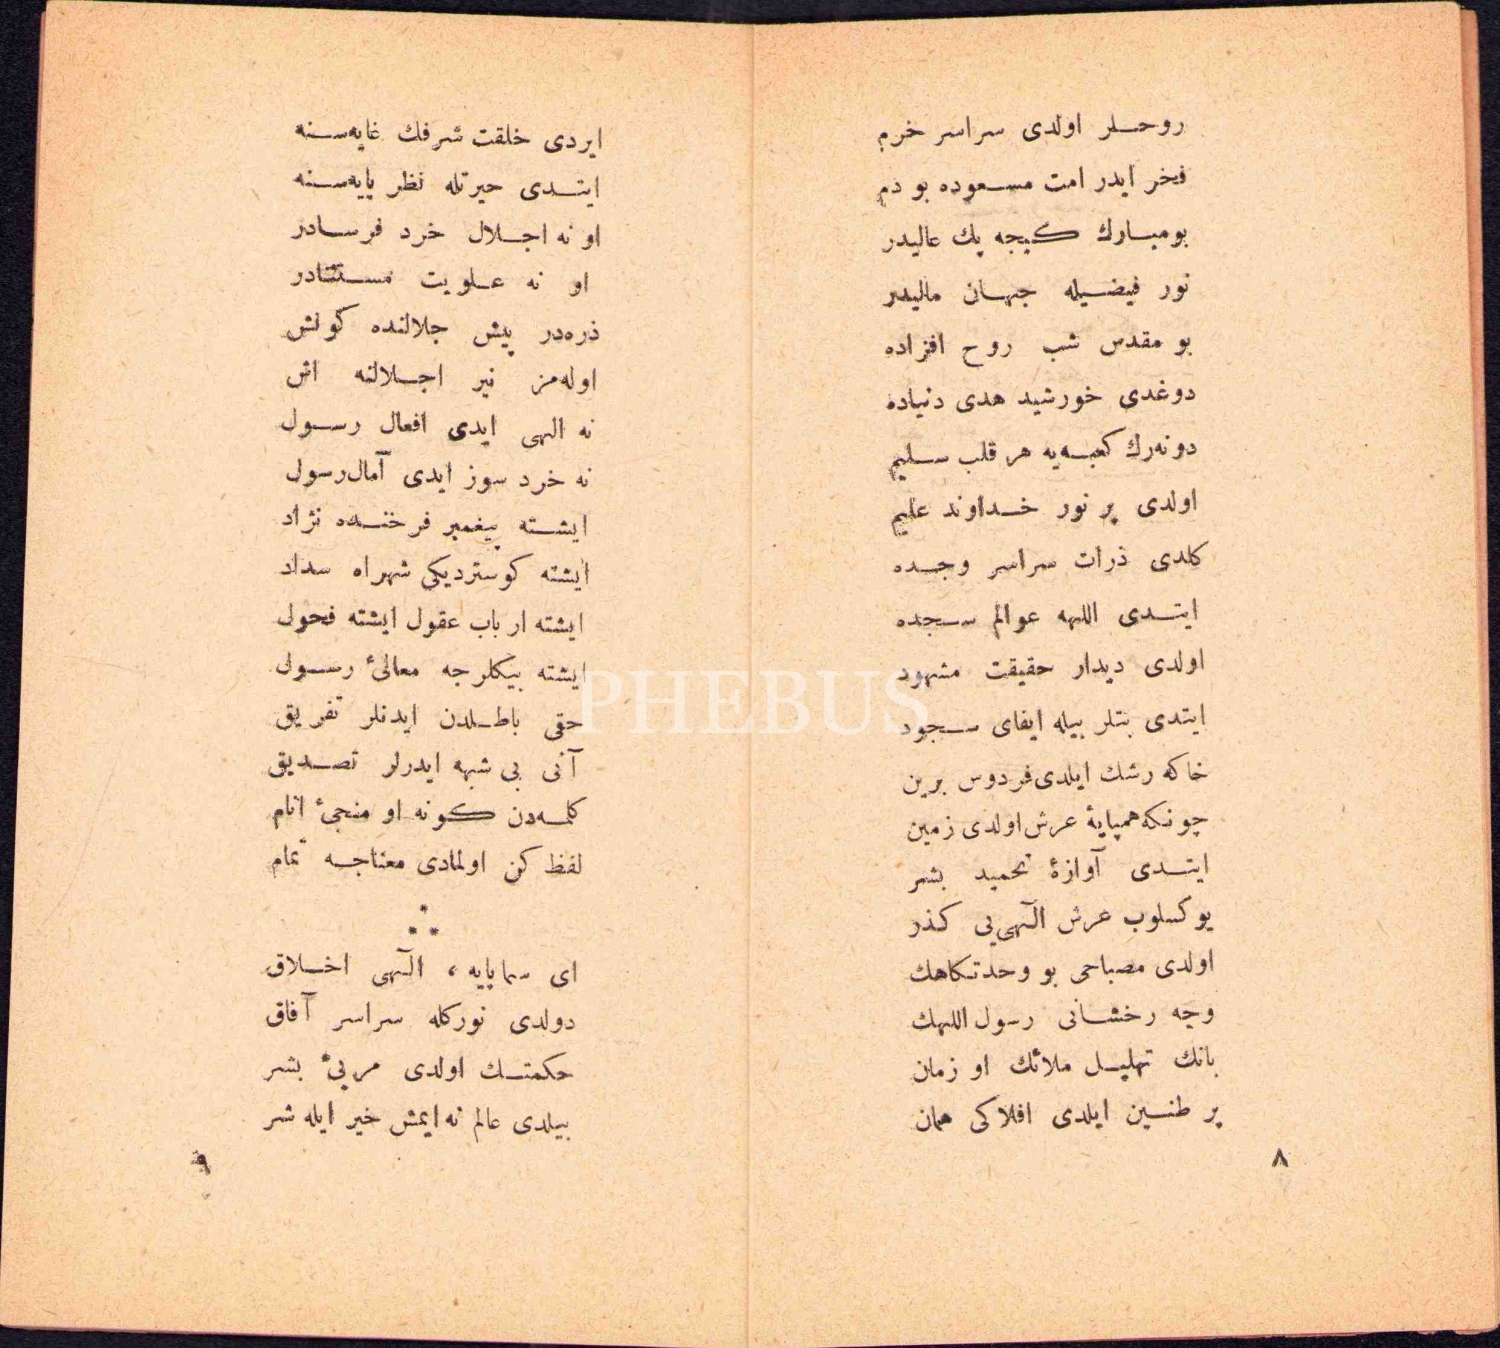 روحلر اولدی سراسر خرم
فخر ایدر امت مسعوده بو دم
بومبارك كیجه پك عالیدر
نور فیضیله جهان مالیدر
بو مقدس شب روح افزاده
دوغدی خورشید هدی دنیاده
دونه‌رك كعبه‌یه هر قلب سلیم
اولدی پر نور خداوند علیم
كلدی ذرات سراسر وجده
ایتدی اللهه عوالم سجده
اولدی دیدار حقیقت مشهود
ایتدی بتلر بیله ایفای سجود
خاكه رشك ایلدی فردوس برین
چونكه همپایهٔ عرش اولدی زمین
ایتدی آوازهٔ تحمید بشر
یوكسلوب عرش الٓهی‌یی كذر
اولدی مصباحی بو وحدتكاهك
وجه رخشانی رسول اللهك
بانك تهلیل ملائك او زمان
پر طنین ایلدی افلاكی همان
٨
ایردی خلقت شرفك غایه‌سنه
ایتدی حیرتله نظر پایه‌سنه
او نه اجلال خرد فرسادر
او نه علویت مستثنادر
ذره‌در پیش جلالنده كونش
اوله‌مز نیر اجلالنه اش
نه الهی ایدی افعال رسول
نه خرد سوز ایدی آمال رسول
ایشته پیغمبر فرخنده نژاد
ایشته كوستردیكی شهراه سداد
ایشته ارباب عقول ایشته فحول
ایشته بیكلرجه معالیٔ رسول
حقی باطلدن ایدنلر تفریق
آنی بی شبهه ایدرلر تصدیق
كلمه‌دن كونه او منجیٔ انام
لفظ كن اولمادی معناجه تمام
* * *
ای سما پایه ، الٓهی اخلاق
دولدی نوركله سراسر آفاق
حكمتك اولدی مربیٔ بشر
بیلدی عالم نه ایمش خیر ایله شر
٩
PHEBUS